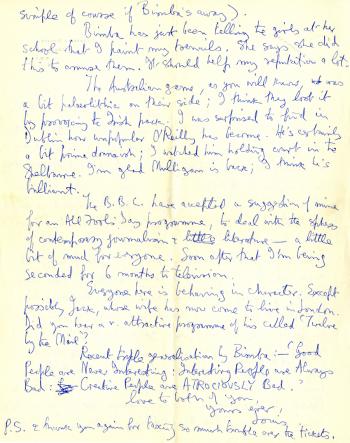 simple of course if Bimba's away).
Bimba has just been telling the girls at her
school that I paint my toenails. She says she did
this to amuse them. It should help my reputation a lot.
The Australian game, as you will know, was
a bit paleolithic on their side; I think they lost it
by provoking the Irish pack. I was surprised to find in
Dublin how unpopular O'Reilly has become. He's certainly
a bit prima donnaish; I watched him holding court in the
Shelbourne. I'm glad Mulligan is back; I think he's
brilliant.
The B.B.C. have accepted a suggestion of mine
for an All Fools' Day programme, to deal with the spheres
of contemporary journalism & literature — a little
bit of mud for everyone. Soon after that I'm being
seconded for 6 months to television.
Everyone here is behaving in character. Except
possibly Jack, whose wife has now come to live in London.
Did you hear a v. attractive programme of his called "Twelve
by the Mail"?
Recent triple generalisation by Bimba :— "Good
People are Never Interesting: Interesting People are Always
Bad: Creative People are ATROCIOUSLY Bad."
love to both of you,
yours ever,
Louis
P.S. & thank you again for taking so much trouble over the tickets.